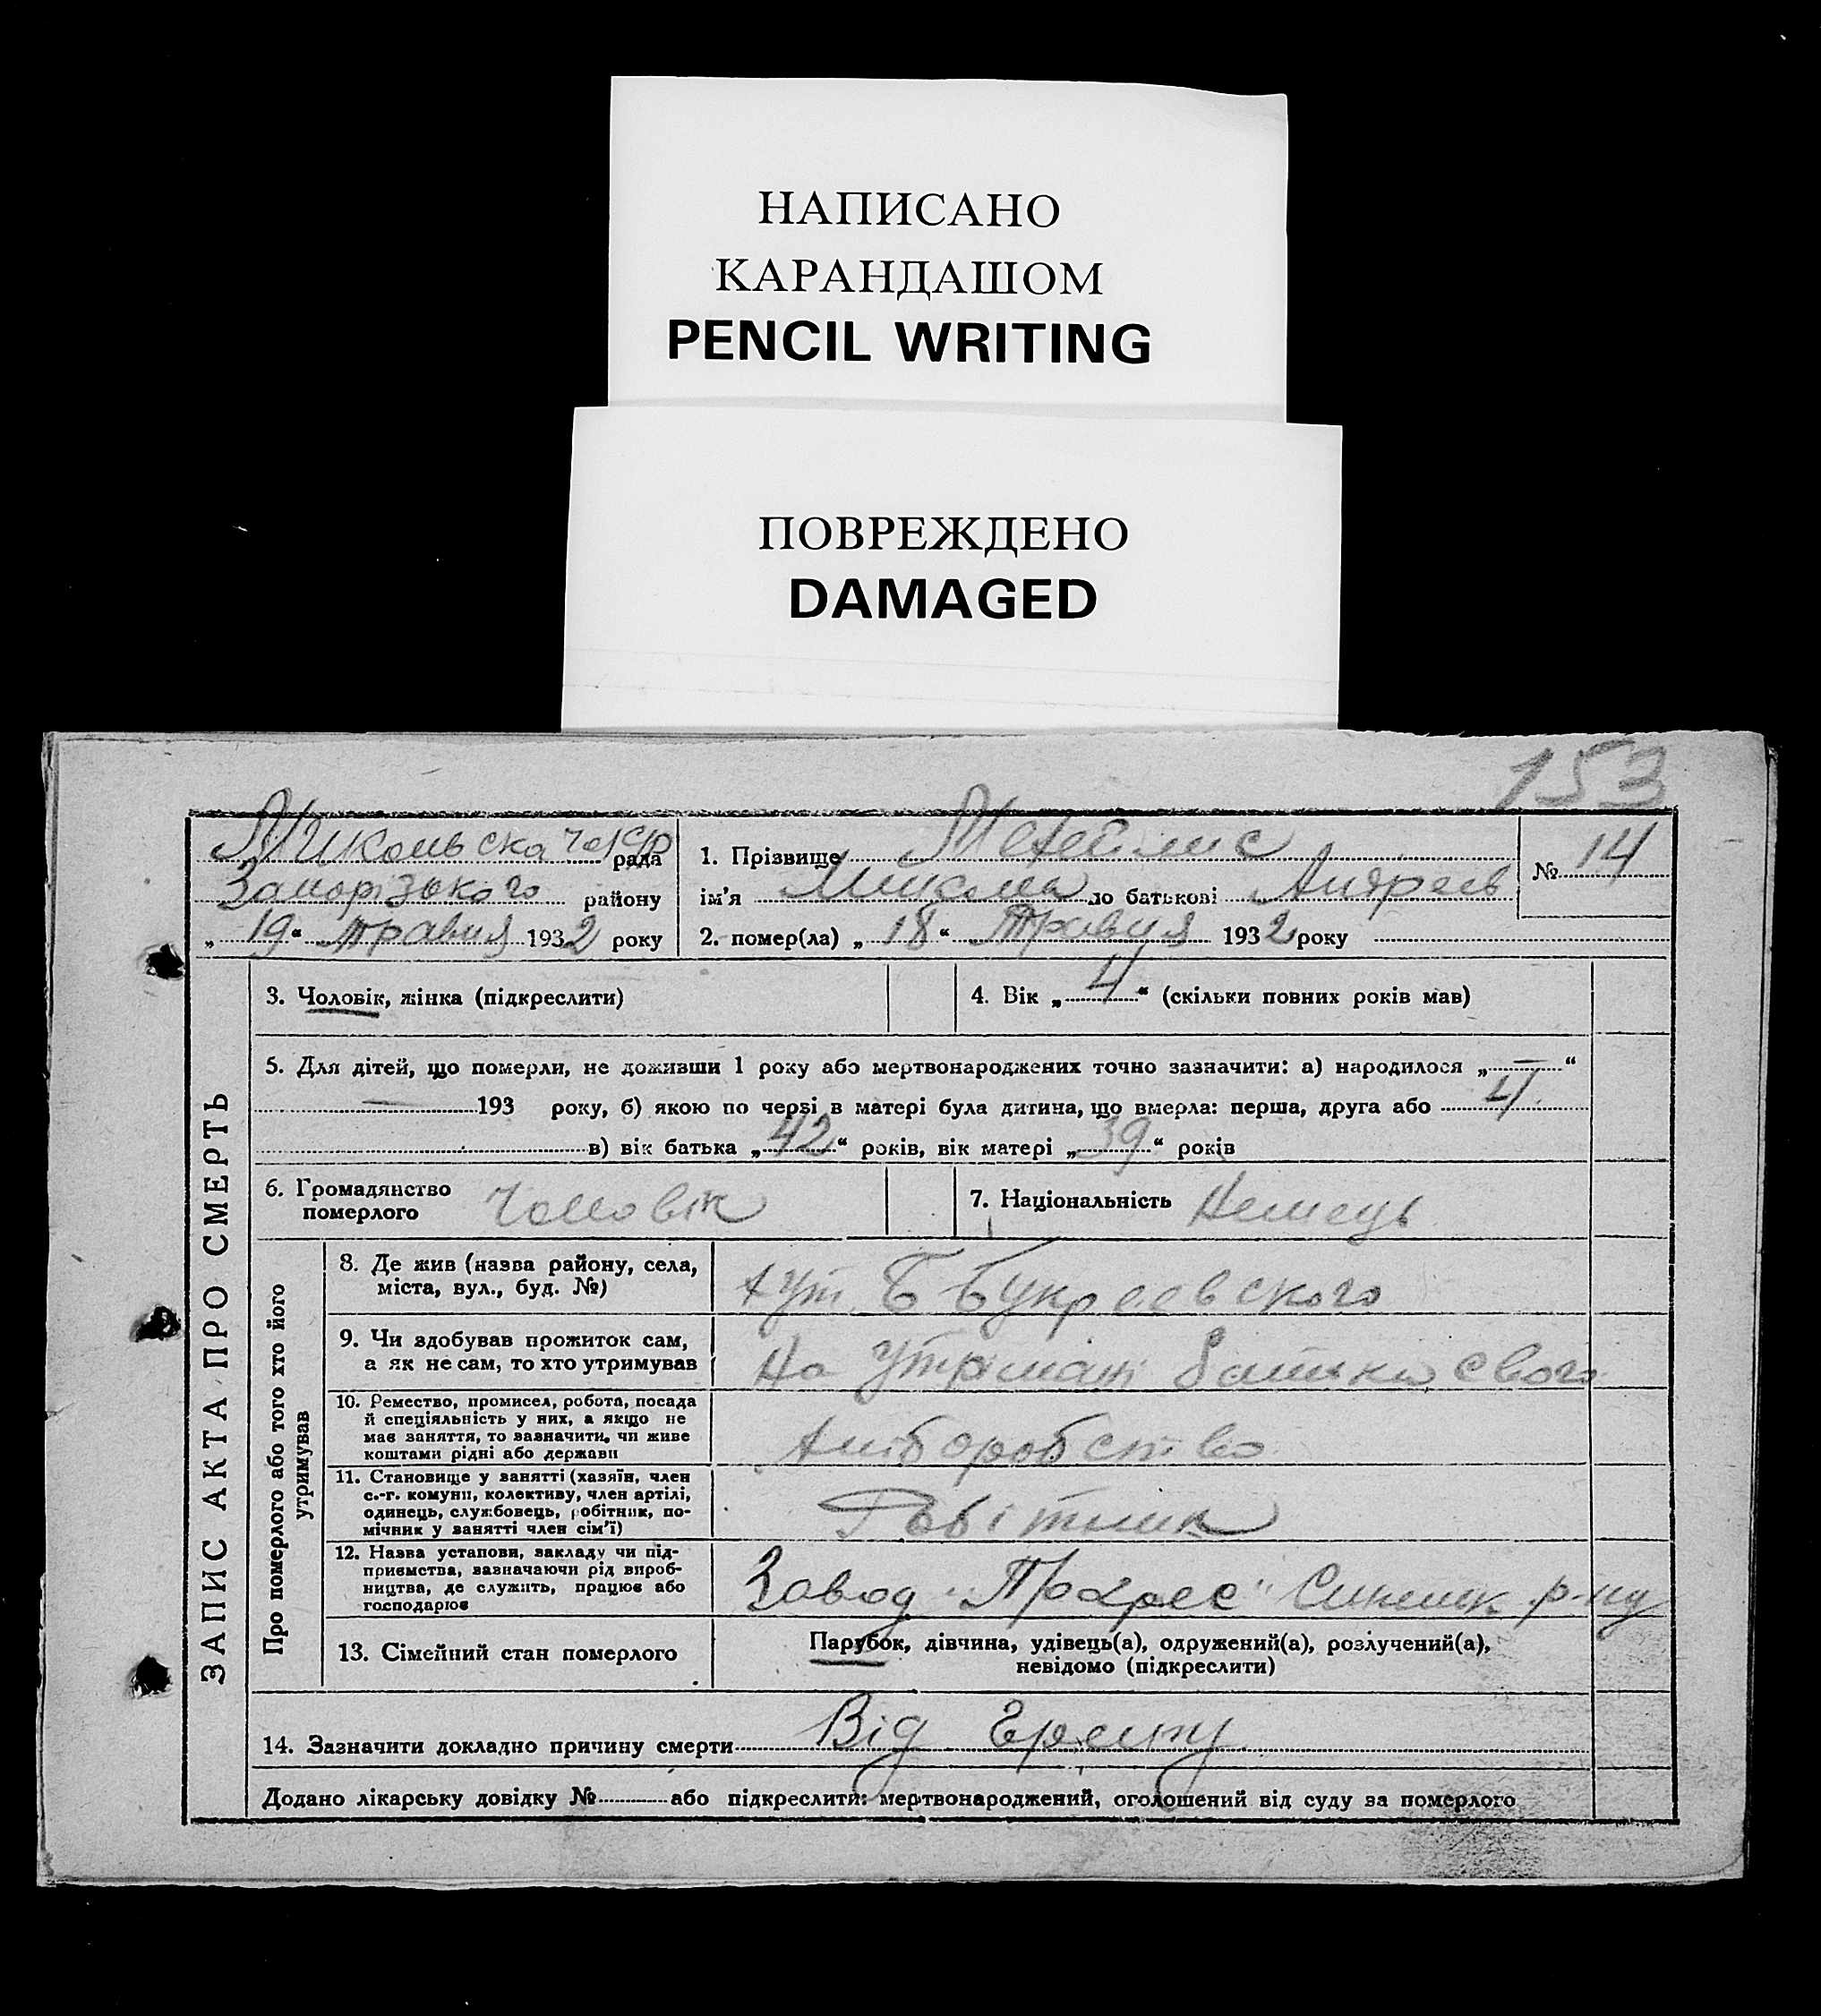 НАПИСАНО
КАРАНДАШОМ
PENCIL WRITING
ПОВРЕЖДЕНО
DAMAGED
153
ЗАПИС АКТА ПРО СМЕРТЬ
рада
району
„19“ травня 1932 року
1. Прізвище
ім’я Микола по батькові Андреев
2. помер(ла) „18“ Травня 1932 року
№ 14
3. Чоловік, жінка (підкреслити)
4. Вік „4“ (скільки повних років мав)
5. Для дітей, що померли, не доживши 1 року або мертвонароджених точно зазначити: а) народилося „—“
— 193 року, б) якою по черзі в матері була дитина, що вмерла: перша, друга або 4
в) вік батька „42“ років, вік матері „39“ років
6. Громадянство
померлого Чоловік
7. Національність Немець
Про померлого або того хто його
утримував
8. Де жив (назва району, села,
міста, вул., буд. №)
хут. Б
9. Чи здобував прожиток сам,
а як не сам, то хто утримував
На утриман батька свого
10. Ремество, промисел, робота, посада
й спеціяльність у них, а якщо не
має заняття, то зазначити, чи живе
коштами рідні або держави
Хліборобство
11. Становище у занятті (хазяїн, член
с.-г. комуни, колективу, член артілі,
одинець, службовець, робітник, по-
мічник у занятті член сім’ї)
Робітник
12. Назва установи, закладу чи під-
приємства, зазначаючи рід вироб-
ництва, де служить, працює або
господарює
Завод „ “ р-ну
13. Сімейний стан померлого
Парубок, дівчина, удівець(а), одружений(а), розлучений(а),
невідомо (підкреслити)
14. Зазначити докладно причину смерти Від
Додано лікарську довідку № або підкреслити: мертвонароджений, оголошений від суду за померлого